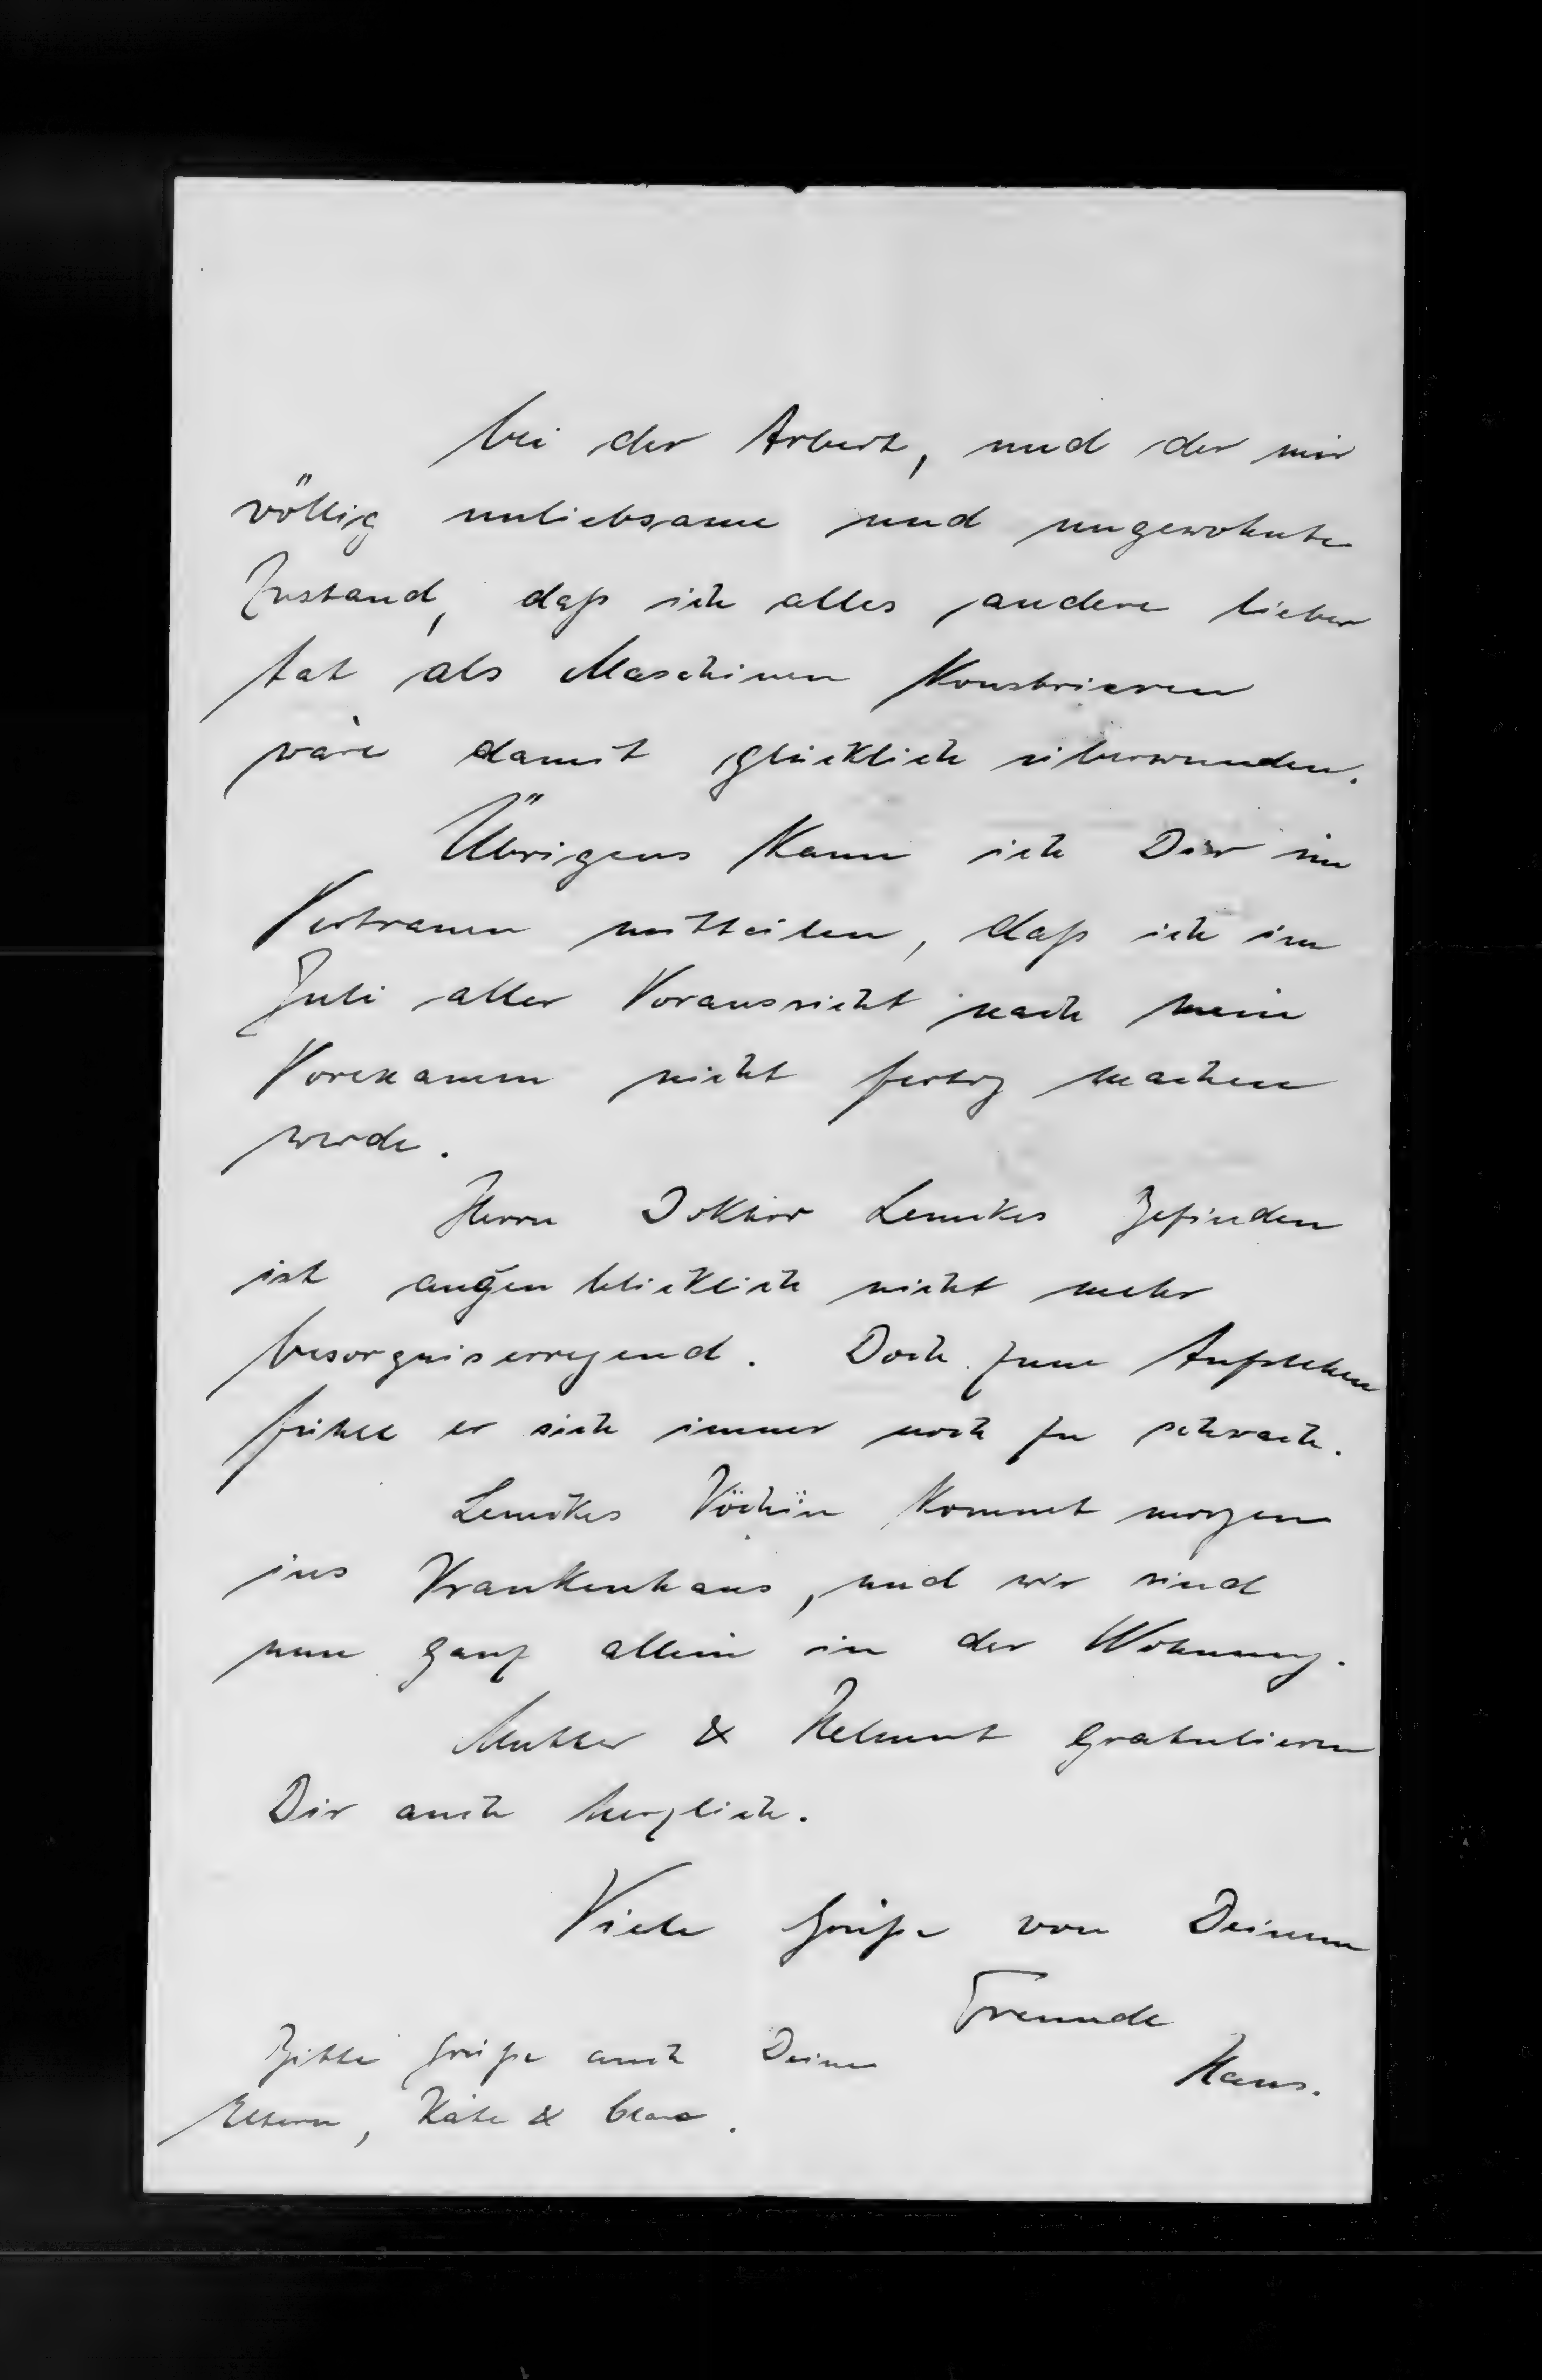 bei der Arbeit, und der mir
völlig unliebsame und ungewohnte
Zustand, daß ich alles andere lieber
tat als Maschinen Konstrieren
wäre damit glücklich überwunden.
Übrigens kann ich Dir im
Vertrauen mitteilen, daß ich im
Juli aller Voraussicht nach mein
Vorexamen nicht fertig machen
werde.
Herrn Doktor Lemckes Befinden
ist augenblicklich nicht mehr
besorgniserregend. Doch zum Aufstehen
fühlt er sich immer noch zu schwach.
Lemckes Köchin kommt morgen
ins Krankenhaus, und wir sind
nun ganz allein in der Wohnung.
Mutter & Helmut gratulieren
Dir auch herzlich.
Viele Grüße von Deinem
Freunde
Hans.
Bitte grüße auch Deine
Eltern, Käte & Clara.